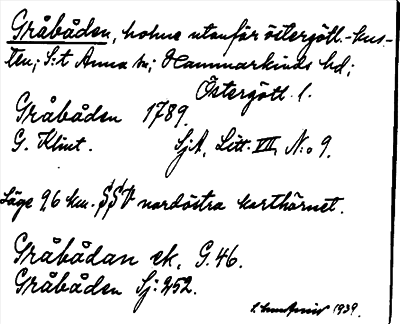 Gråbåden, holme utanför östergötl.-kus-
ten; S:t Anna sn; Hammarkinds hd;
Östergötl. l.
Gråbåden 1789.
G. Klint. SjA, Litt. VII, N:o 9.
Läge 9,6 km. SSV nordöstra karthörnet.
Gråbådan ek. G. 46.
Gråbåden Sj: 252.
1939.